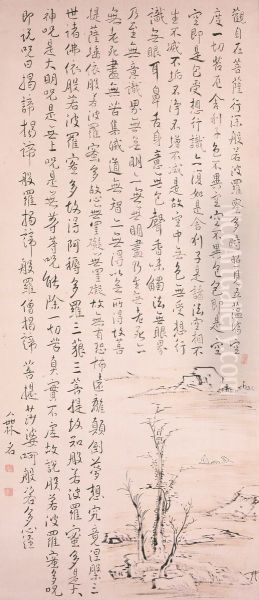 觀自在菩薩行深般若波羅蜜多時照見五蘊皆空
度一切苦厄舍利子色不異空空不異色色即是空
空即是色受想行識亦復如是舍利子是諸法空相不
生不滅不垢不淨不增不減是故空中無色無受想行
識無眼耳鼻舌身意無色聲香味觸法無眼界
乃至無意識界無無明亦無無明盡乃至無老死亦
無老死盡無苦集滅道無智亦無得以無所得故菩
提薩埵依般若波羅蜜多故心無罣礙無罣礙故無有恐怖遠離顛倒夢想究竟涅槃三
世諸佛依般若波羅蜜多故得阿耨多羅三藐三菩提故知般若波羅蜜多是大
神呪是大明呪是無上呪是無等等呪能除一切苦真實不虛故說般若波羅蜜多呪
即說呪曰揭諦揭諦般羅揭諦般羅僧揭諦菩提莎婆呵般若多心經